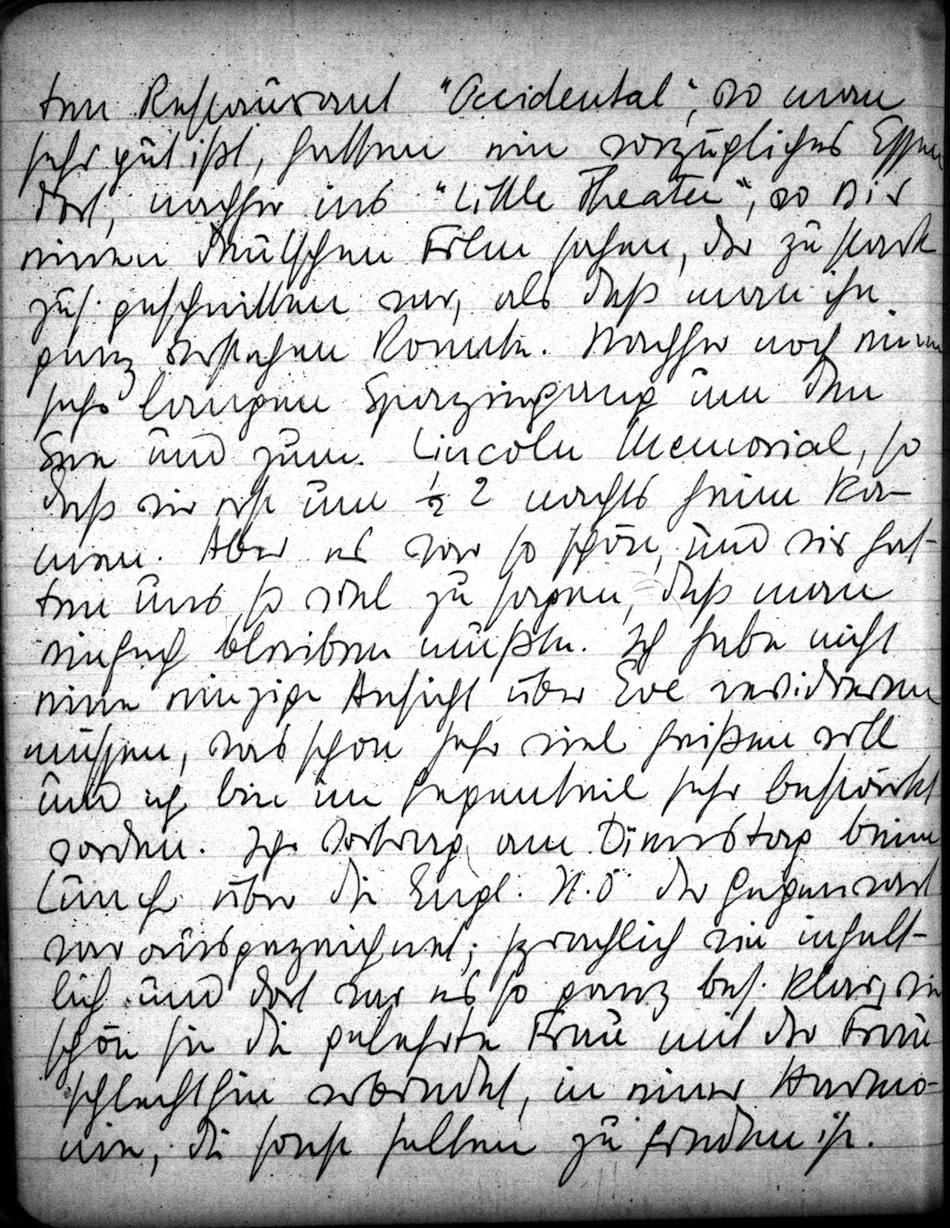 ten Restaurant "Occidental", wo man
sehr gut ißt, hatten ein vorzügliches Essen
dort, nachher ins "Little Theater", wo wir
einen deutschen Film sahen, der zu stark
zus. geschnitten war, als daß man ihn
ganz verstehen konnte. Nachher noch einen
sehr langen Spaziergang um den
See und zum Lincoln Memorial, so
daß wir erst um ½ 2 nachts heim ka-
men. Aber es war so schön, und wir hat-
ten uns so viel zu sagen, daß man
einfach bleiben mußte. Ich habe nicht
eine einzige Ansicht über Eve revidieren
müssen, was schon sehr viel heißen will
und ich bin im Gegenteil sehr bestärkt
worden. Ihr Vortrag am Dienstag beim
Lunch über die Engl. N.Ö der Gegenwart
war ausgezeichnet; sprachlich wie inhalt-
lich und dort war es so ganz bes. klar, wie
schön sie die gelehrte Frau mit der Frau
schlechthin verbindet, in einer Harmo-
nie, die sonst selten zu finden ist.